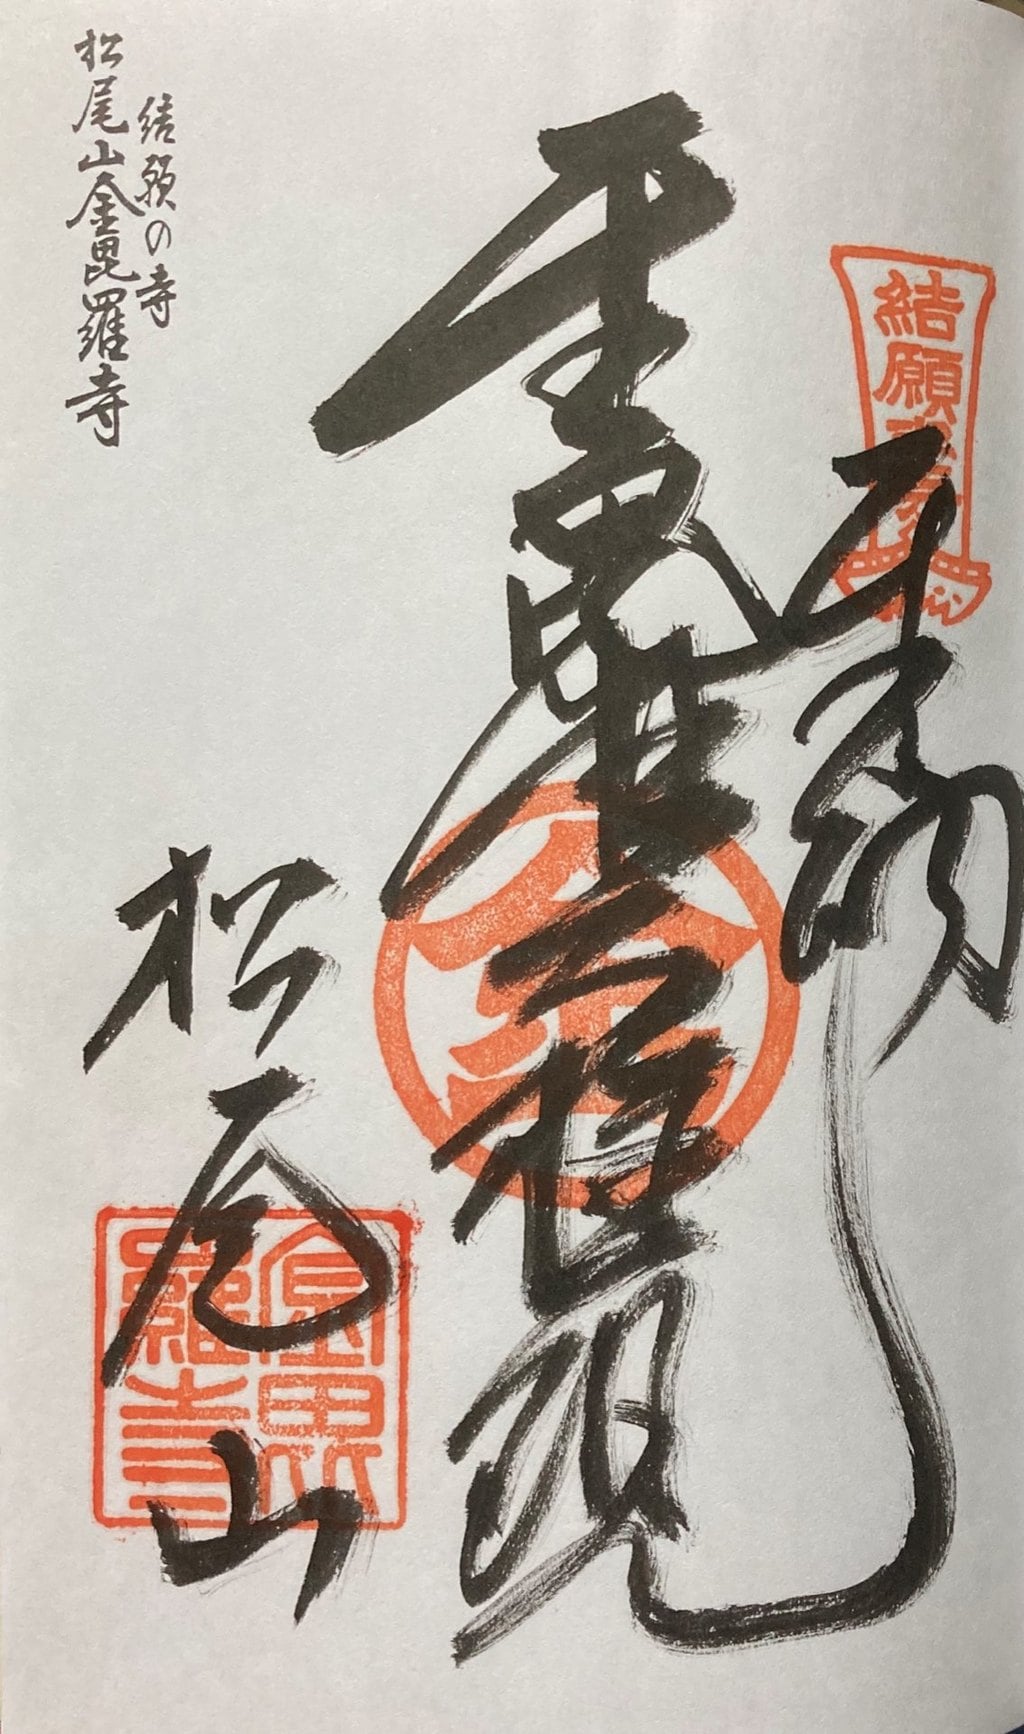 結願
奉拝
金毘羅大権現
松尾山
結願の寺
松尾山金毘羅寺
金
金毘
羅寺